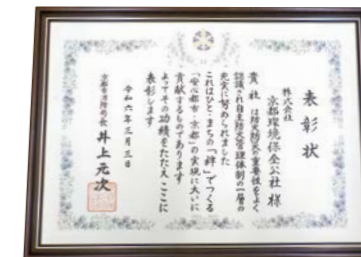 表彰状
株式会社
京都環境保全公社 様
貴社は防火防災の重要性をよく
認識され自主防火管理体制の一層の
充実に努められました
これはひと・まちの「絆」でつくる
「安心都市・京都」の実現に大いに
貢献するものであります
よってその功績をたたえここに
表彰します
令和六年三月三日
京都市消防局長 井上元次